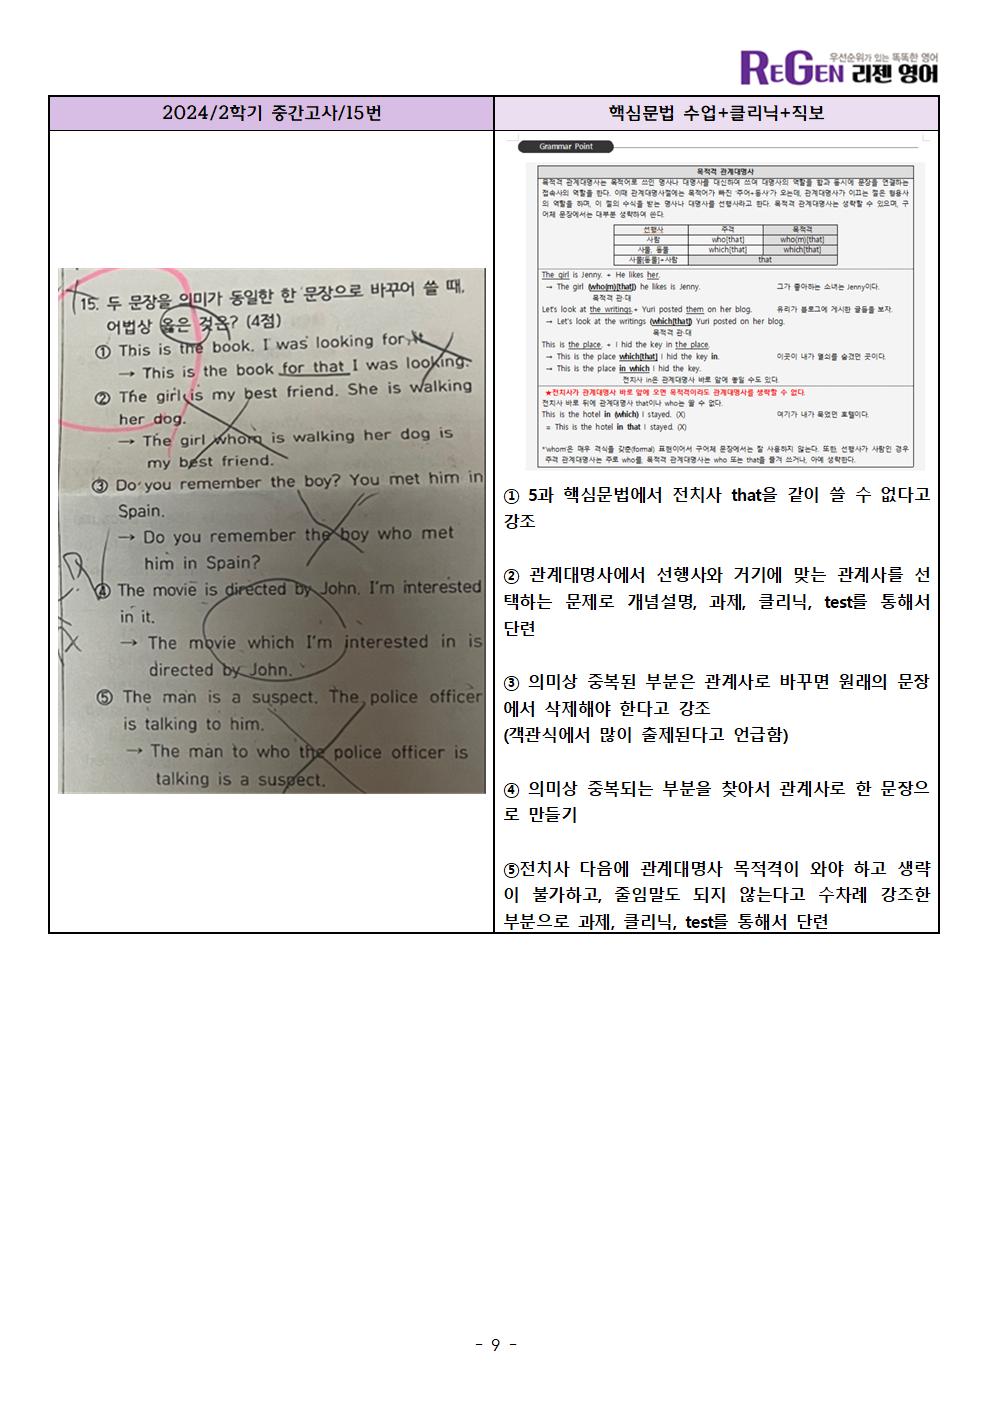 우선순위가 있는 똑똑한 영어
REGEN 리젠 영어
2024/2학기 중간고사/15번
핵심문법 수업+클리닉+직보
15. 두 문장을 의미가 동일한 한 문장으로 바꾸어 쓸 때,
어법상 옳은 것은? (4점)
① This is the book. I was looking for it.
→ This is the book for that I was looking.
② The girl is my best friend. She is walking
her dog.
→ The girl whom is walking her dog is
my best friend.
③ Do you remember the boy? You met him in
Spain.
→ Do you remember the boy who met
him in Spain?
④ The movie is directed by John. I'm interested
in it.
→ The movie which I'm interested in is
directed by John.
⑤ The man is a suspect. The police officer
is talking to him.
→ The man to who the police officer is
talking is a suspect.
Grammar Point
목적격 관계대명사
목적격 관계대명사는 목적어로 쓰인 명사나 대명사를 대신하여 쓰여 대명사의 역할을 함과 동시에 문장을 연결하는
접속사의 역할을 한다. 이때 관계대명사절에는 목적어가 빠진 '주어+동사'가 오는데, 관계대명사가 이끄는 절은 형용사
의 역할을 하며, 이 절의 수식을 받는 명사나 대명사를 선행사라고 한다. 목적격 관계대명사는 생략할 수 있으며, 구
어체 문장에서는 대부분 생략하여 쓴다.
선행사 주격 목적격
사람 who[that] who(m)[that]
사물, 동물 which[that] which[that]
사물[동물]+사람 that
The girl is Jenny. + He likes her.
→ The girl (who(m)[that]) he likes is Jenny. 그가 좋아하는 소녀는 Jenny이다.
목적격 관·대
Let's look at the writings.+ Yuri posted them on her blog. 유리가 블로그에 게시한 글들을 보자.
→ Let's look at the writings (which[that]) Yuri posted on her blog.
목적격 관·대
This is the place. + I hid the key in the place.
→ This is the place which[that] I hid the key in. 이곳이 내가 열쇠를 숨겼던 곳이다.
→ This is the place in which I hid the key.
전치사 in은 관계대명사 바로 앞에 놓일 수도 있다.
★전치사가 관계대명사 바로 앞에 오면 목적격이라도 관계대명사를 생략할 수 없다.
전치사 바로 뒤에 관계대명사 that이나 who는 올 수 없다.
This is the hotel in (which) I stayed. (X) 여기가 내가 묵었던 호텔이다.
= This is the hotel in that I stayed. (X)
*'whom'은 매우 격식을 갖춘(formal) 표현이어서 구어체 문장에서는 잘 사용하지 않는다. 또한, 선행사가 사람인 경우
주격 관계대명사는 주로 who를, 목적격 관계대명사는 who 또는 that을 즐겨 쓰거나, 아예 생략한다.
① 5과 핵심문법에서 전치사 that을 같이 쓸 수 없다고
강조
② 관계대명사에서 선행사와 거기에 맞는 관계사를 선
택하는 문제로 개념설명, 과제, 클리닉, test를 통해서
단련
③ 의미상 중복된 부분은 관계사로 바꾸면 원래의 문장
에서 삭제해야 한다고 강조
(객관식에서 많이 출제된다고 언급함)
④ 의미상 중복되는 부분을 찾아서 관계사로 한 문장으
로 만들기
⑤전치사 다음에 관계대명사 목적격이 와야 하고 생략
이 불가하고, 줄임말도 되지 않는다고 수차례 강조한
부분으로 과제, 클리닉, test를 통해서 단련
- 9 -